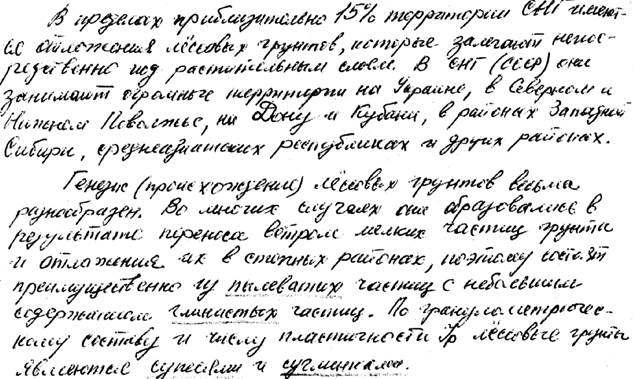 В пределах приблизительно 15% территории СНГ имеют-
ся отложения лёссовых грунтов, которые залегают непос-
редственно под растительным слоем. В СНГ (СССР) они
занимают огромные территории на Украине, в Северном и
Нижнем Поволжье, на Дону и Кубани, в районах Западной
Сибири, среднеазиатских республиках и других районах.
Генезис (происхождение) лёссовых грунтов весьма
разнообразен. Во многих случаях они образовались в
результате переноса ветром мелких частиц грунта
и отложения их в степных районах, поэтому состоят
преимущественно из пылеватых частиц с небольшим
содержанием глинистых частиц. По гранулометричес-
кому составу и числу пластичности Jp лёссовые грунты
являются супесями и суглинками.